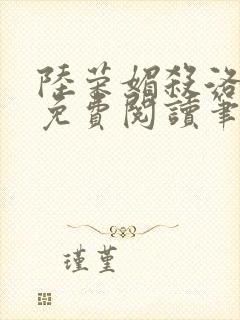 陸榮媚殺洛
免費閱讀筆
瑾堇